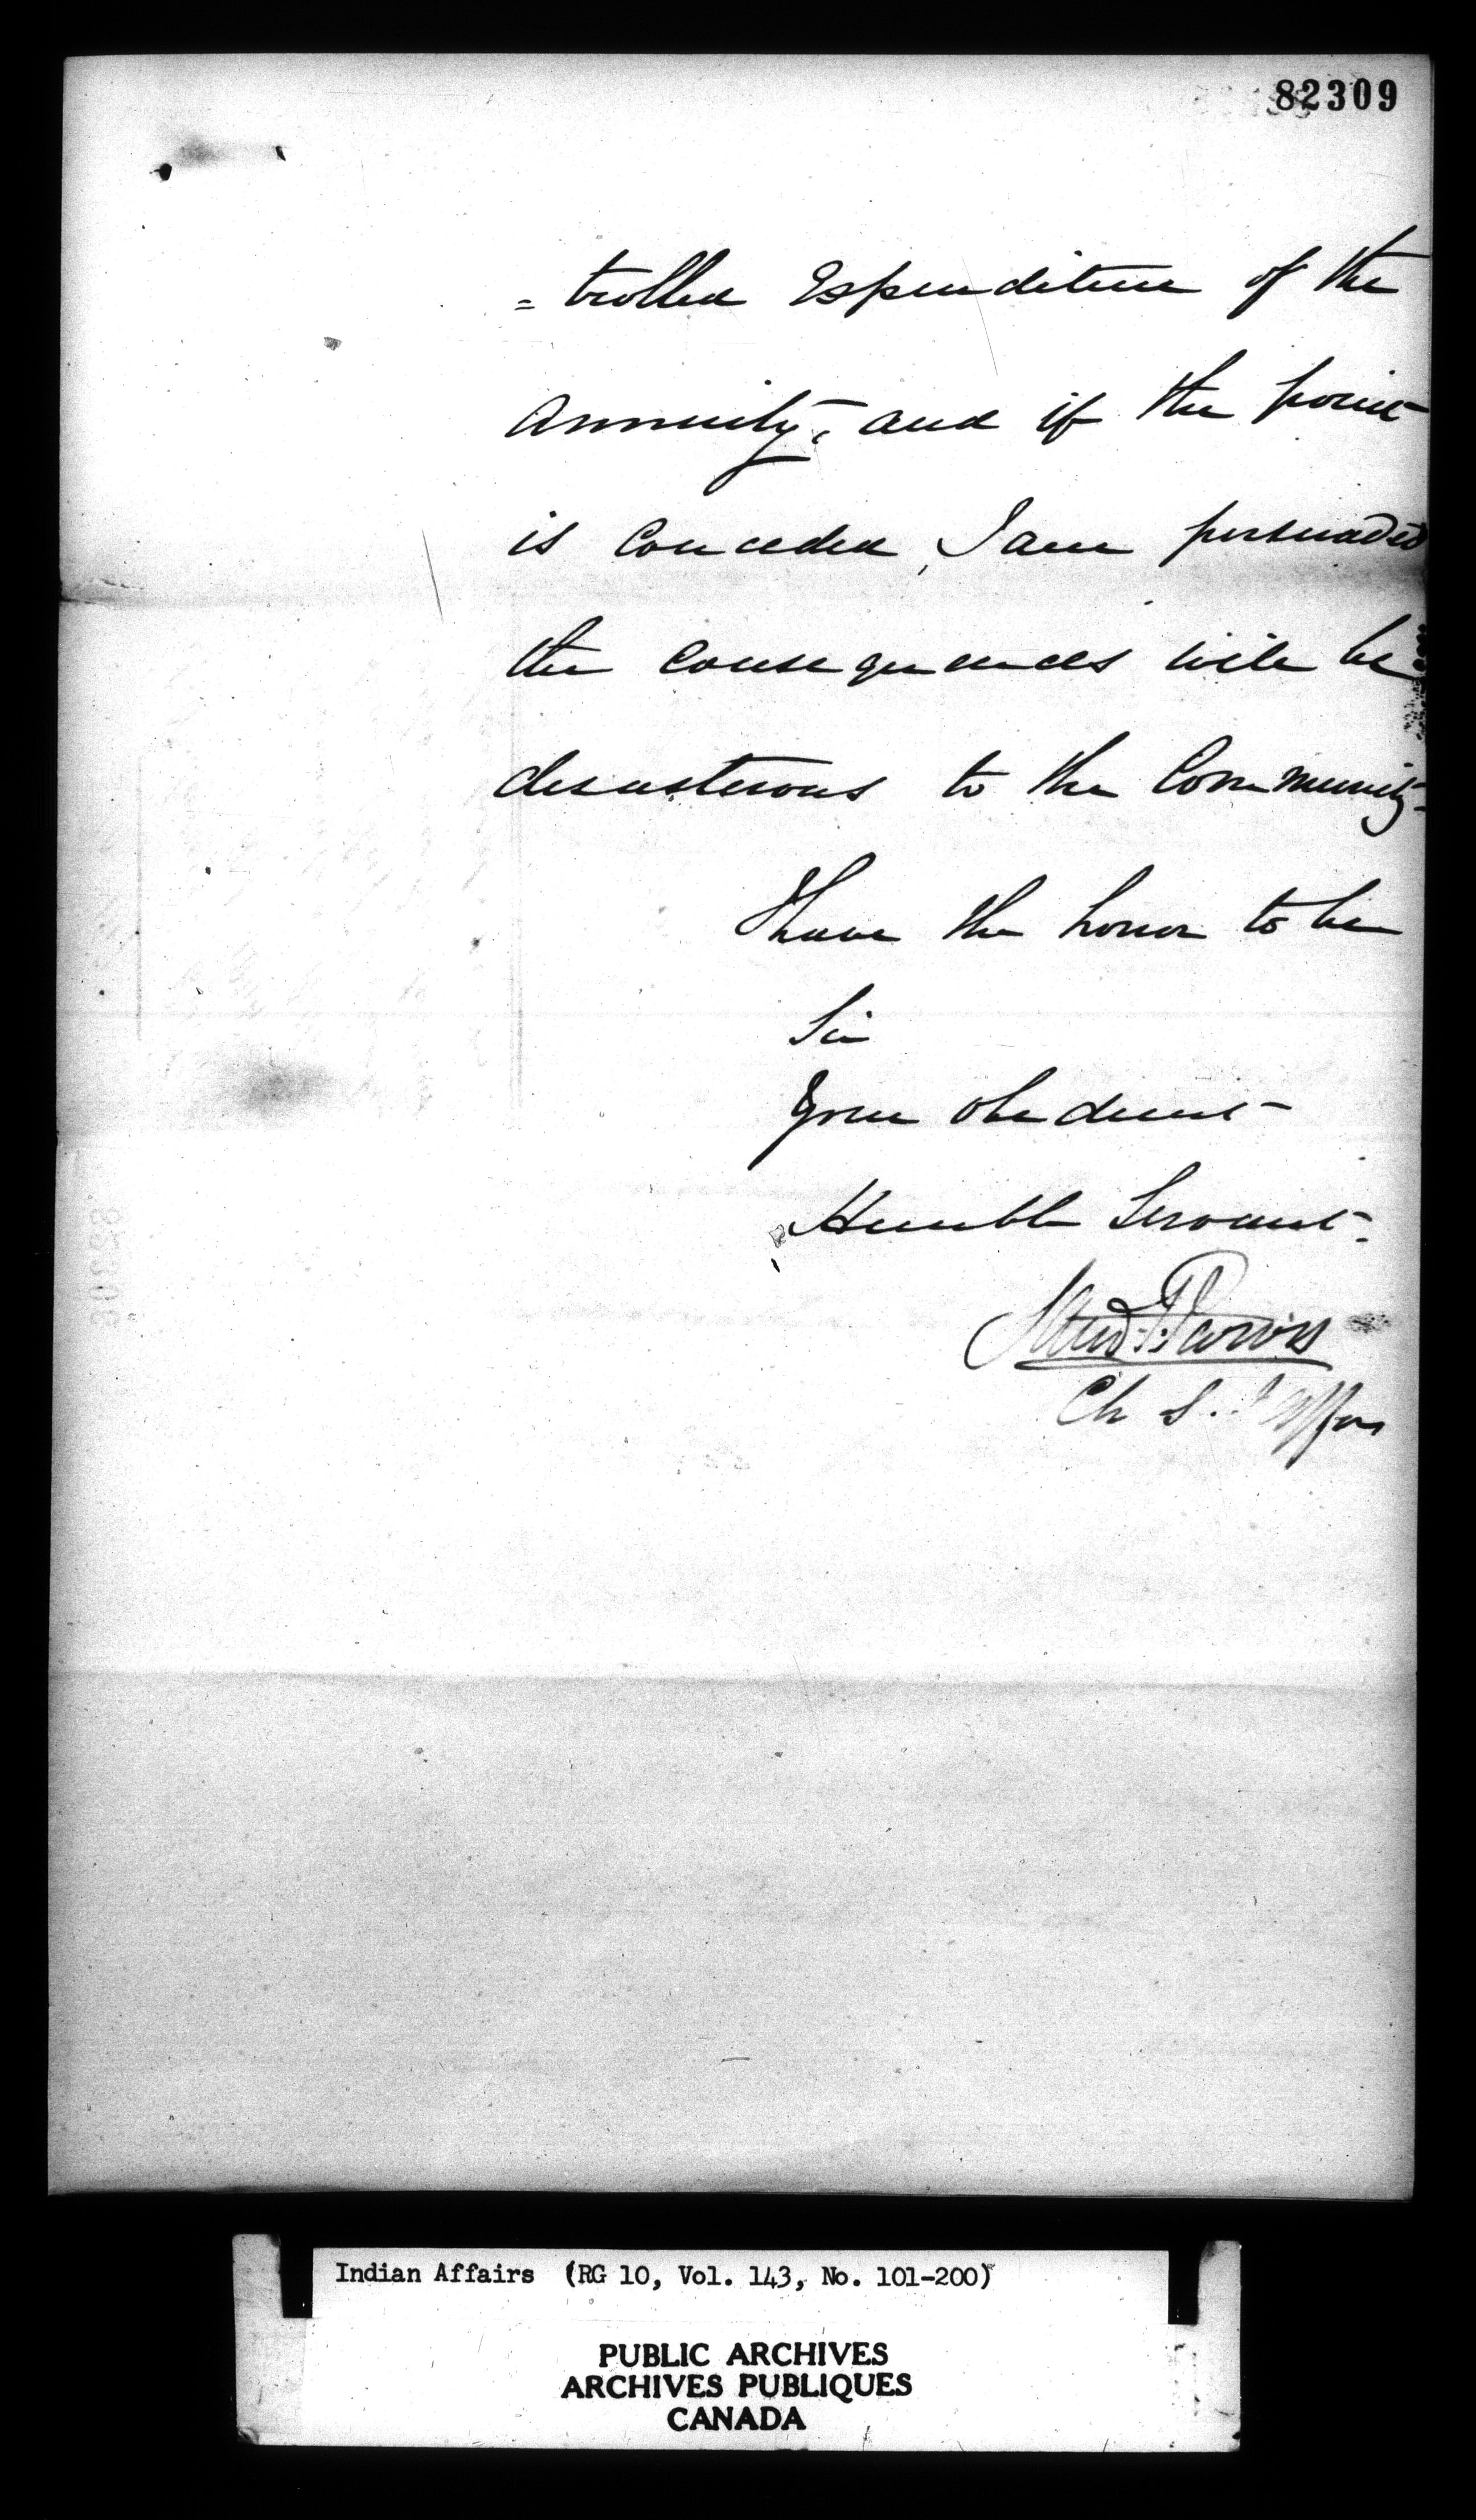 82309
= trolled Expenditure of the
Annuity, and if the point
is Conceded, I am persuaded
the Consequences will be
desasterous to the Community-
I have the honor to be
Sir
Your obedient
Humble Servant
Saml P. Jarvis
Ch S. I Affrs
Indian Affairs (RG 10, Vol. 143, No. 101-200)
PUBLIC ARCHIVES
ARCHIVES PUBLIQUES
CANADA